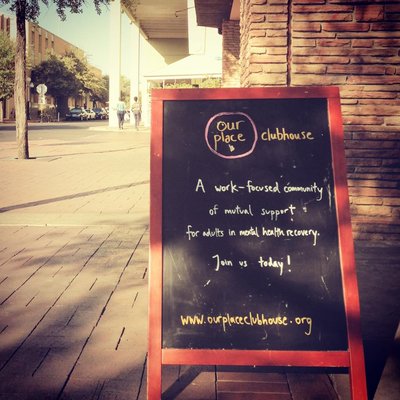 our place clubhouse
A work-focused community
of mutual support
for adults in mental health recovery.
Join us today!
www.ourplaceclubhouse.org